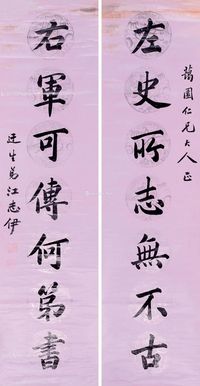 蔼園仁兄大人正
左史所志無不古
右軍可傳何第書
迂生弟江志伊